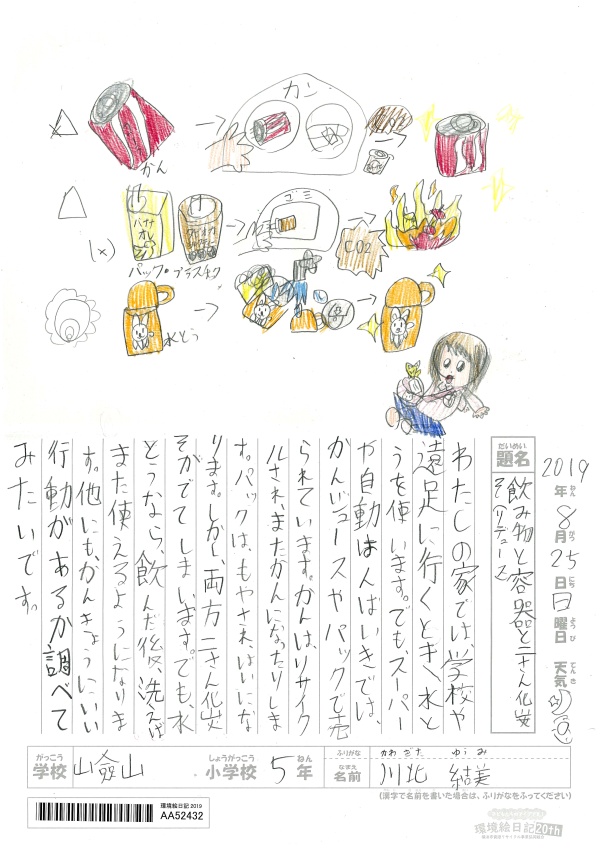 カン
かん
ゴミ
CO2
バナナ
オレ
(x)
パック・プラスチック
水とう
2019年8月25日日曜日 天気
ねん
がつ
にち
ようび
てんき
だいめい
題名
飲み物と容器と二さん化炭
そのリデュース
わたしの家では、学校や
遠足に行くとき、水と
うを使います。でも、スーパー
や自動はんばいきでは、
かんジュースやパックで売
られています。かんは、リサイク
ルされ、またかんになったりしま
す。パックは、もやされ、はいにな
ります。しかし、両方二さん化炭
そがでてしまいます。でも、水
とうなら、飲んだ後、洗えば
また使えるようになりま
す。他にも、かんきょうにいい
行動があるか調べて
みたいです。
がっこう
学校
しょうがっこう
小学校
5年
ねん
ふりがな
かわ ぎた ゆうみ
なまえ
名前
川北 結美
(漢字で名前を書いた場合は、ふりがなをふってください)
環境絵日記 2019
AA52432
環境絵日記20th